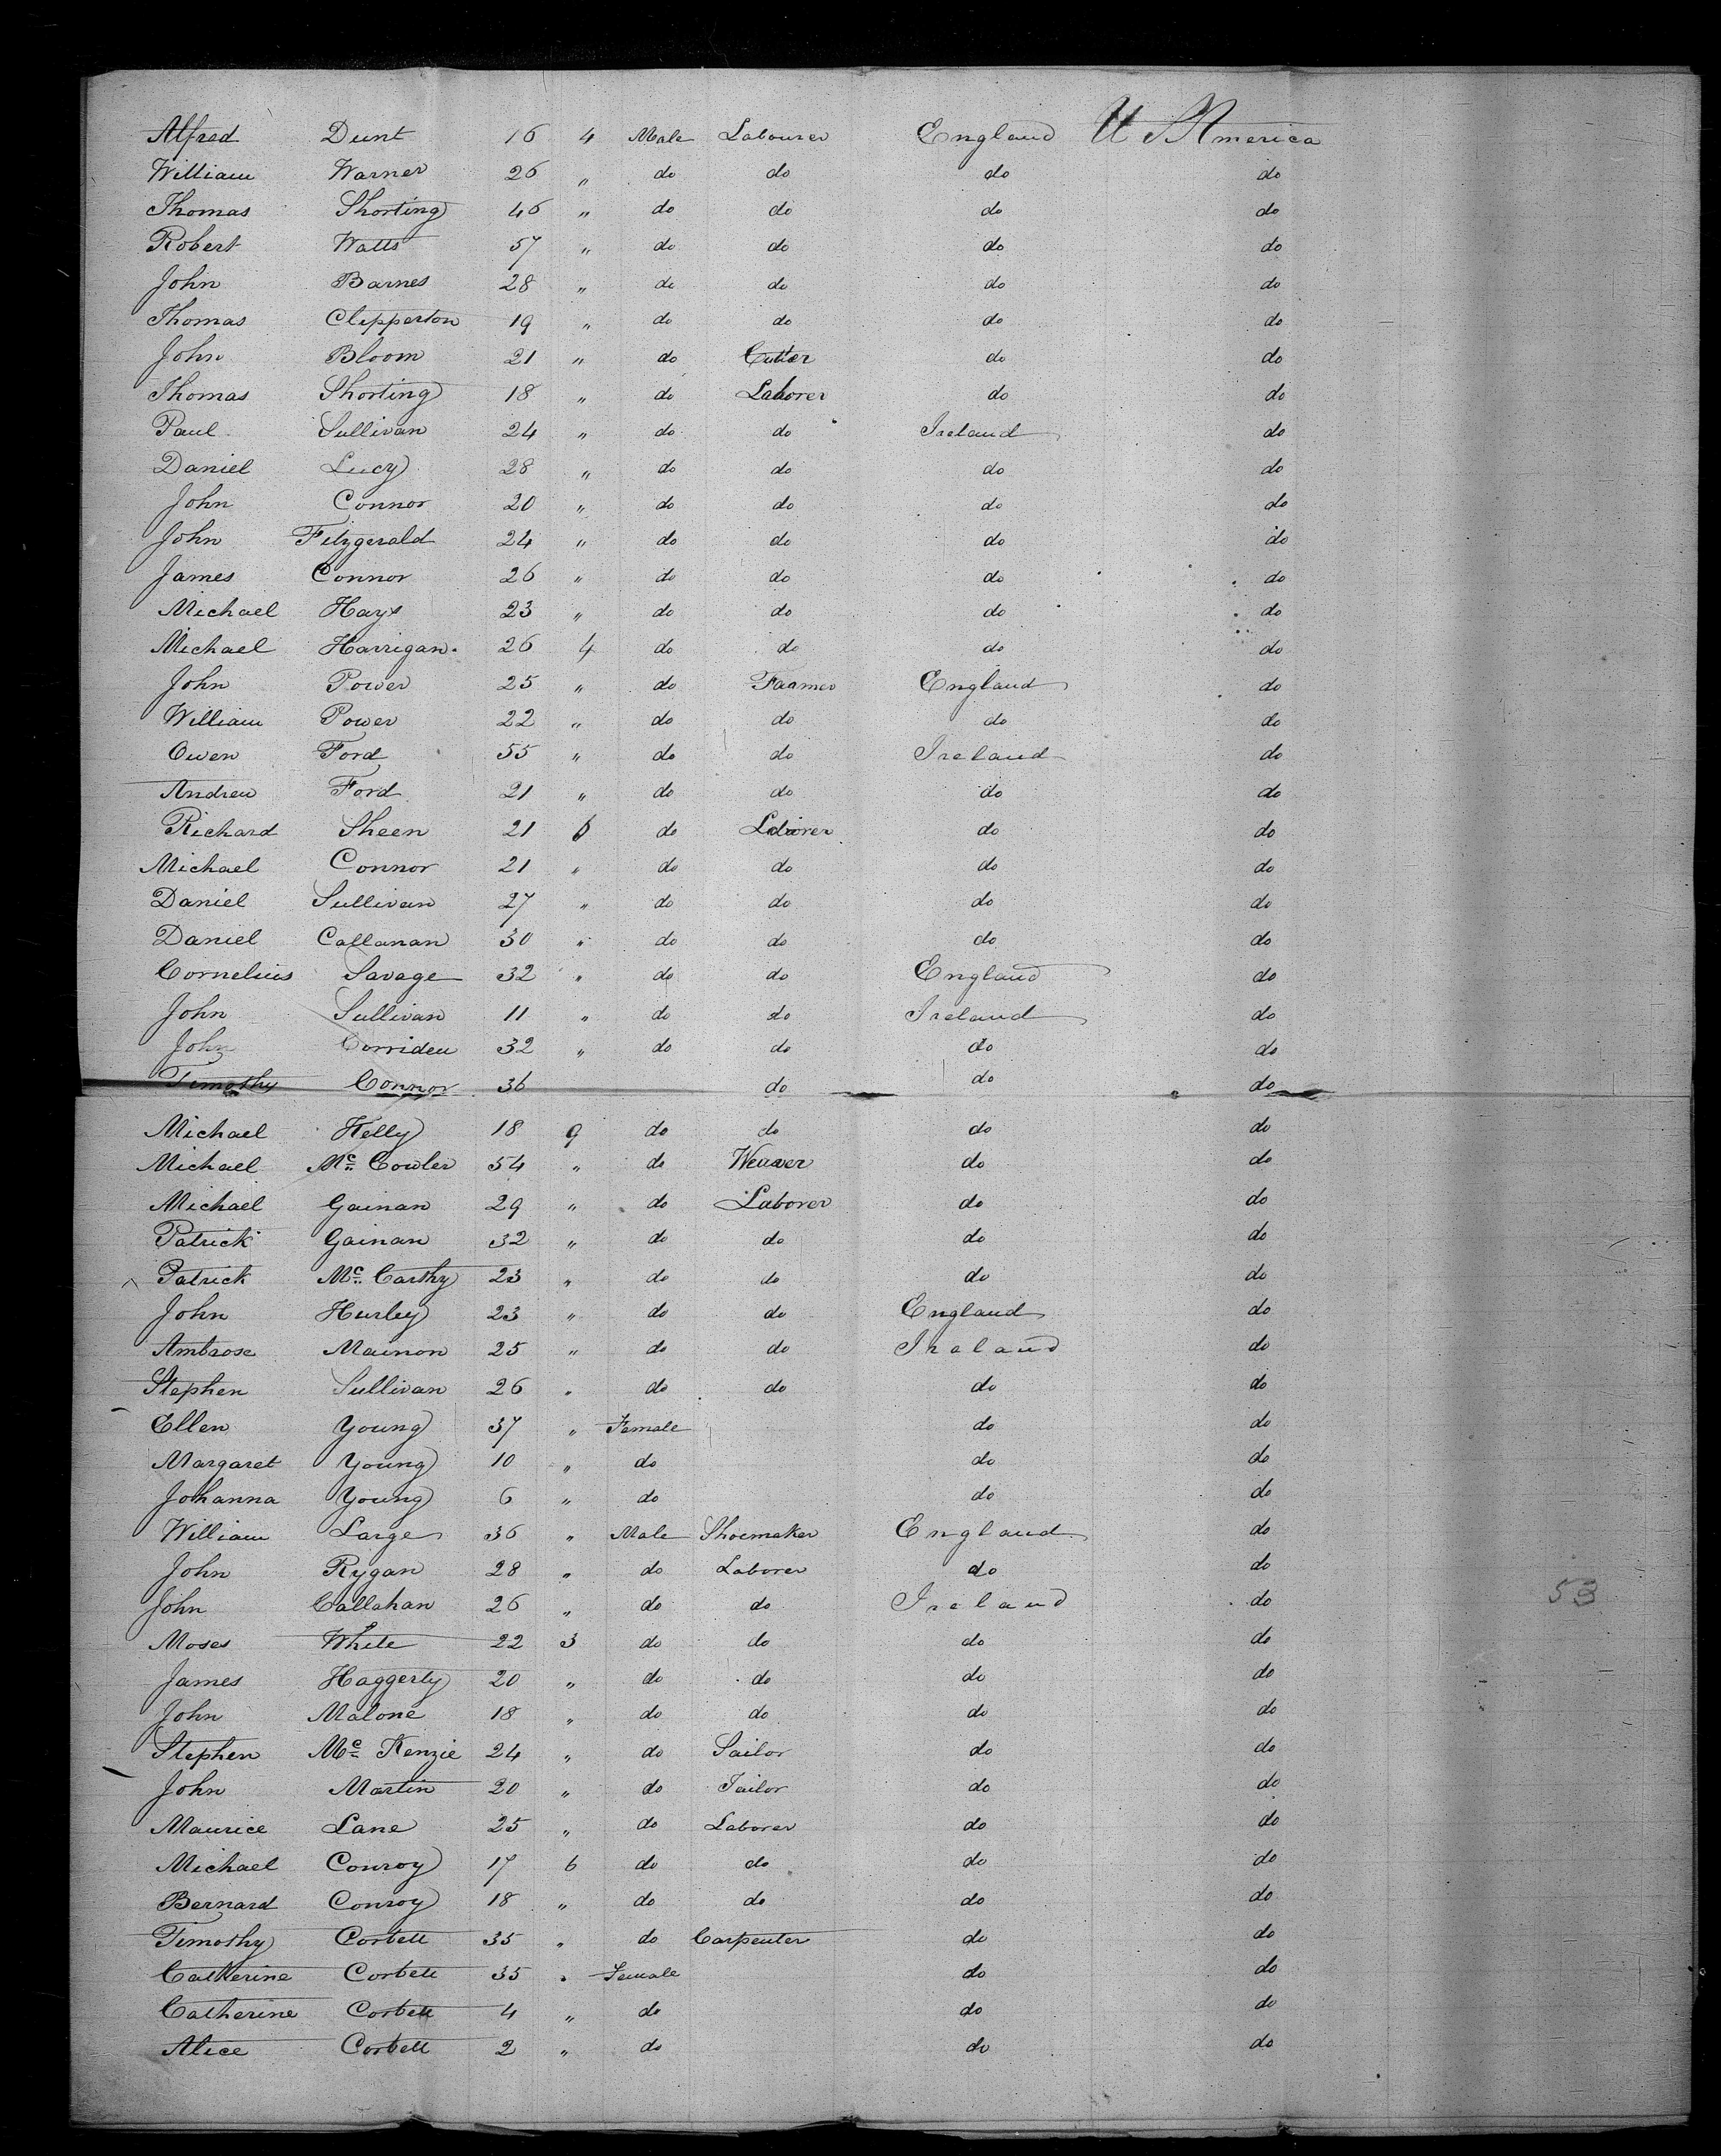 Alfred Dunt 16 4 Male Labourer England U S America
William Warner 26 " do do do do
Thomas Shorting 46 " do do do do
Robert Watts 57 " do do do do
John Barnes 28 " do do do do
Thomas Clipperton 19 " do do do do
John Bloom 21 " do Cutter do do
Thomas Shorting 18 " do Laborer do do
Paul Sullivan 24 " do do Ireland do
Daniel Lucy 28 " do do do do
John Connor 20 " do do do do
John Fitzgerald 24 " do do do do
James Connor 26 " do do do do
Michael Hays 23 " do do do do
Michael Harrigan 26 4 do do do do
John Power 25 " do Farmer England do
William Power 22 " do do do do
Owen Ford 55 " do do Ireland do
Andrew Ford 21 " do do do do
Richard Sheen 21 6 do Laborer do do
Michael Connor 21 " do do do do
Daniel Sullivan 27 " do do do do
Daniel Callanan 30 " do do do do
Cornelius Savage 32 " do do England do
John Sullivan 11 " do do Ireland do
John Corriden 32 " do do do do
Timothy Connor 36 do do do
Michael Kelly 18 9 do do do do
Michael Mc Cowler 54 " do Weaver do do
Michael Gainan 29 " do Laborer do do
Patrick Gainan 32 " do do do do
Patrick Mc Carthy 23 " do do do do
John Hurley 23 " do do England do
Ambrose Mainon 25 " do do Ireland do
Stephen Sullivan 26 " do do do do
Ellen Young 37 " Female do do
Margaret Young 10 " do do do
Johanna Young 6 " do do do
William Large 36 " Male Shoemaker England do
John Rygan 28 " do Laborer do do
John Callahan 26 " do do Ireland do 53
Moses White 22 3 do do do do
James Haggerty 20 " do do do do
John Malone 18 " do do do do
Stephen Mc Kenzie 24 " do Sailor do do
John Martin 20 " do Tailor do do
Maurice Lane 25 " do Laborer do do
Michael Conroy 17 6 do do do do
Bernard Conroy 18 " do do do do
Timothy Corbett 35 " do Carpenter do do
Catherine Corbett 35 " Female do do
Catherine Corbett 4 " do do do
Alice Corbett 2 " do do do